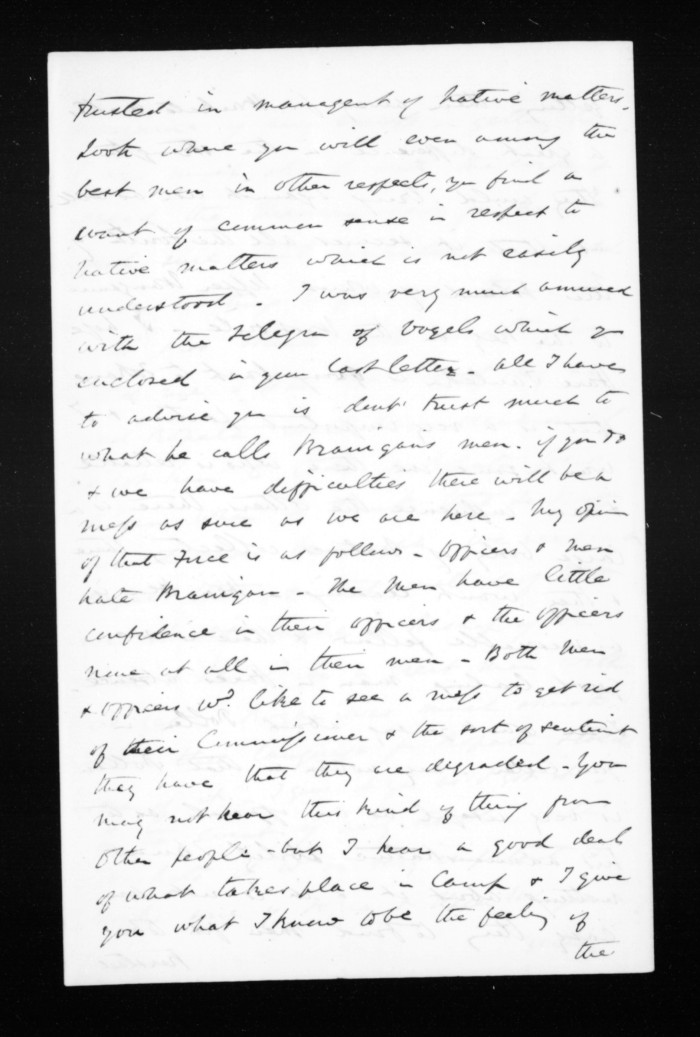 trusted in managent of native matters.
Look where you will even among the
best men in other respects, you find a
want of common sense in respect to
native matters which is not easily
understood. I was very much amused
with the Telegram of Vogels which you
enclosed in your last letter. All I have
to advise you is dont trust much to
what he calls Branigans men. if you do
& we have difficulties there will be a
mess as sure as we are here. My opinion
of that Force is as follows. Officers & men
hate Branigan. The Men have little
confidence in their officers & the officers
none at all in their men. Both Men
& officers wd. like to see a mess to get rid
of their Commissioner & the sort of sentiment
they have that they are degraded. You
may not hear this kind of thing from
other people - but I hear a good deal
of what takes place in Camp & I give
you what I know to be the feeling of
the